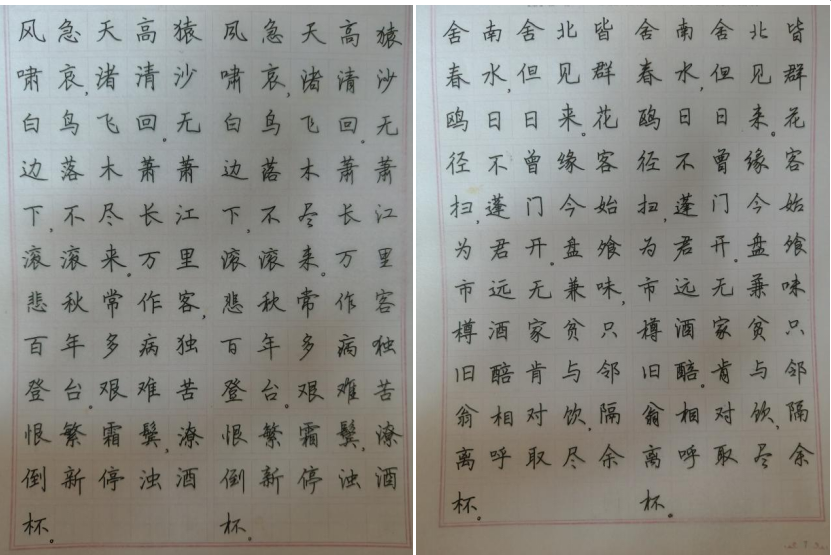 风急天高猿 风急天高猿
啸哀,渚清沙 啸哀,渚清沙
白鸟飞回。无 白鸟飞回。无
边落木萧萧 边落木萧萧
下,不尽长江 下,不尽长江
滚滚来。万里 滚滚来。万里
悲秋常作客, 悲秋常作客
百年多病独 百年多病独
登台。艰难苦 登台。艰难苦
恨繁霜鬓,潦 恨繁霜鬓,潦
倒新停浊酒 倒新停浊酒
杯。 杯。
舍南舍北皆 舍南舍北皆
春水,但见群 春水,但见群
鸥日日来。花 鸥日日来。花
径不曾缘客 径不曾缘客
扫,蓬门今始 扫,蓬门今始
为君开。盘飧 为君开。盘飧
市远无兼味, 市远无兼味
樽酒家贫只 樽酒家贫只
旧醅肯与邻 旧醅。肯与邻
翁相对饮,隔 翁相对饮,隔
离呼取尽余 离呼取尽余
杯。 杯。